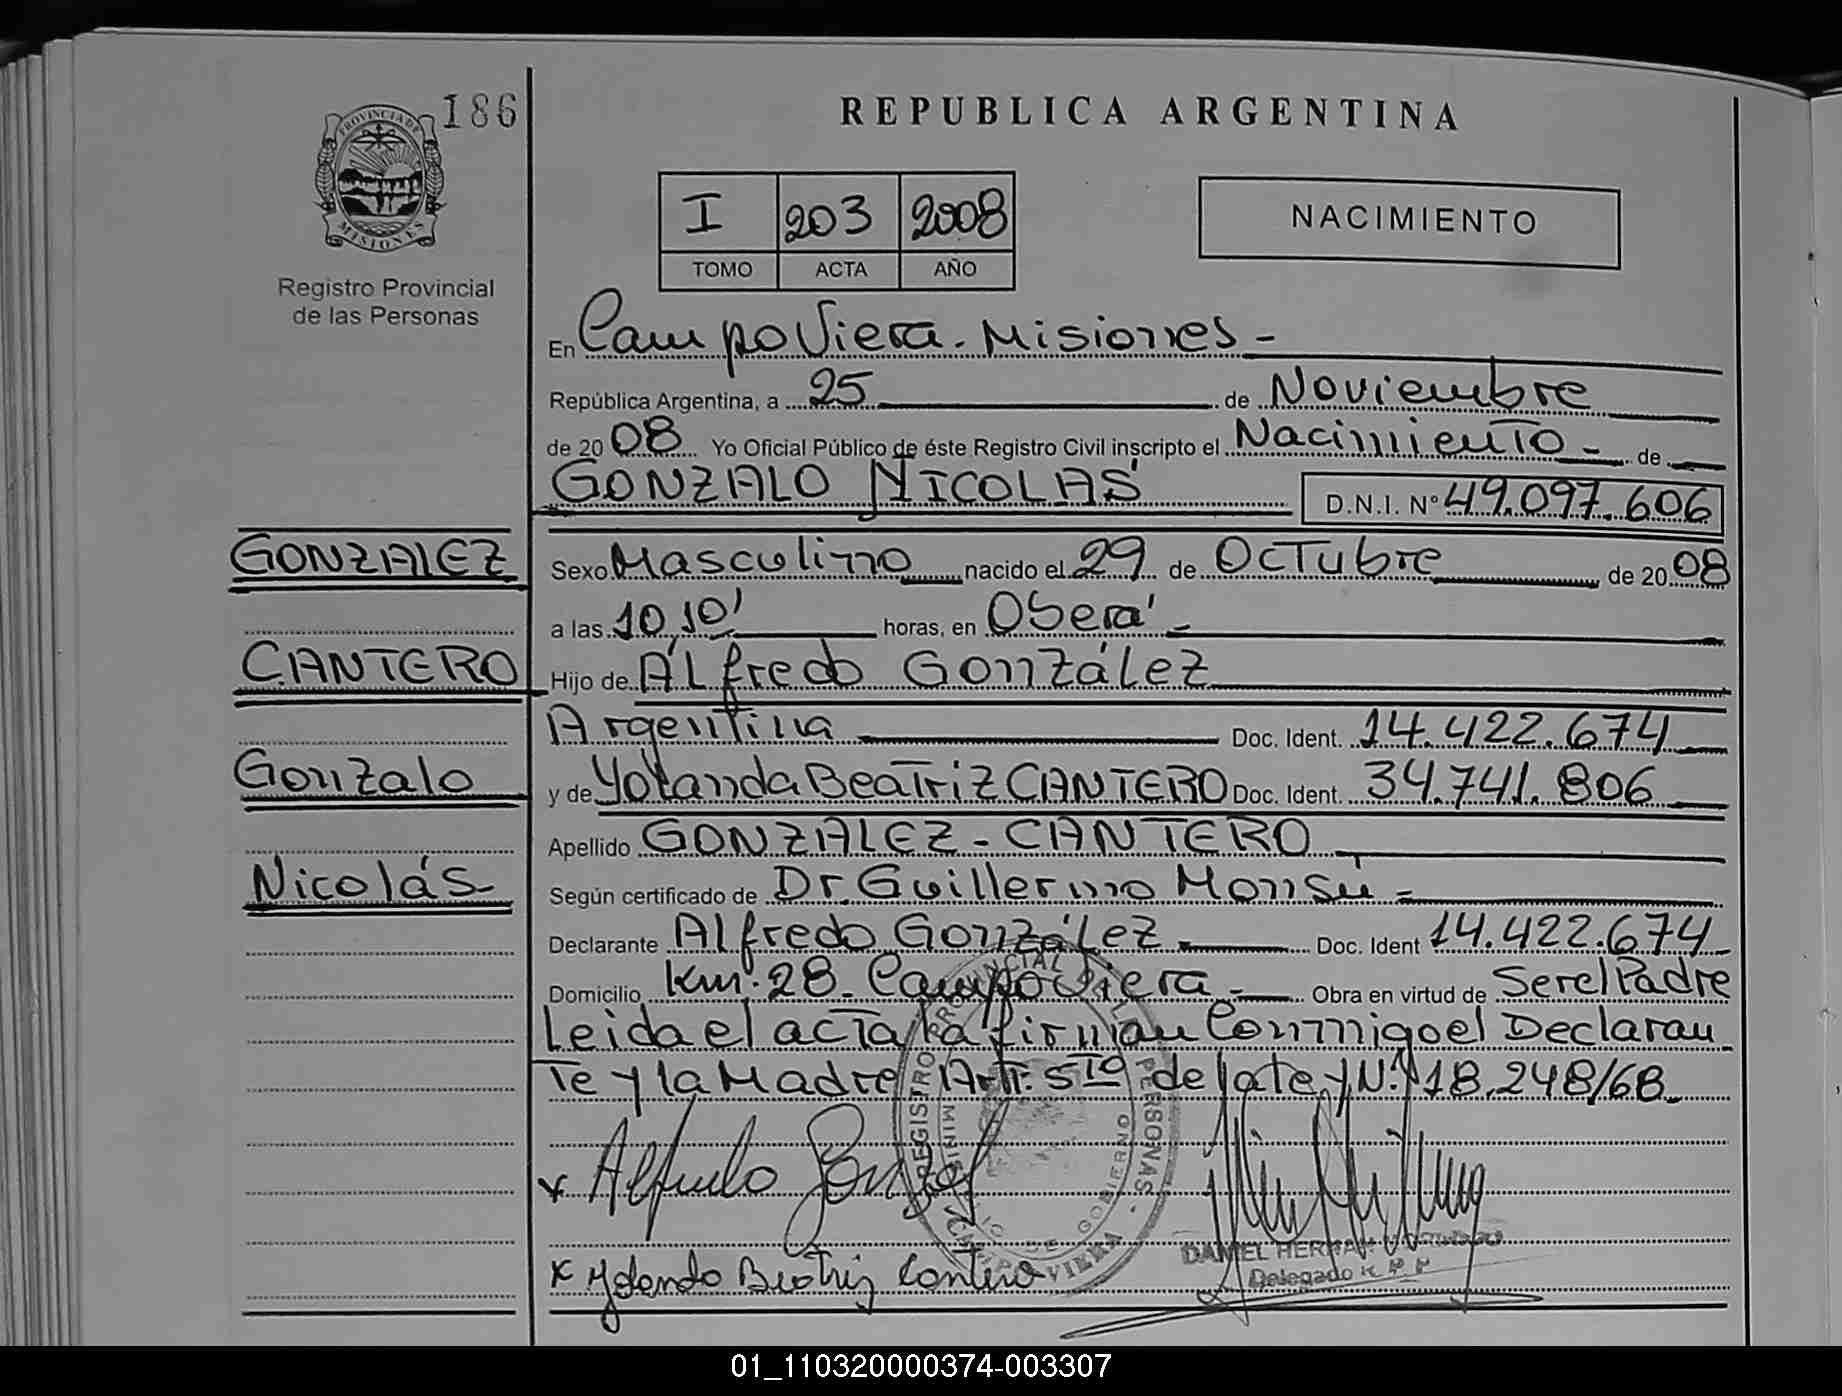 186
PROVINCIA DE
MISIONES
Registro Provincial
de las Personas
REPUBLICA ARGENTINA
I 203 2008
TOMO ACTA AÑO
NACIMIENTO
En Campo Viera - Misiones -
República Argentina, a 25 de Noviembre
de 2008 Yo Oficial Público de éste Registro Civil inscripto el Nacimiento - de
GONZALO NICOLÁS D.N.I. Nº 49.097.606
GONZALEZ
Sexo Masculino nacido el 29 de Octubre de 2008
a las 10,10' horas, en Oberá -
CANTERO
Hijo de Alfredo González
Argentina Doc. Ident. 14.422.674
Gonzalo
y de Yolanda Beatriz CANTERO Doc. Ident. 34.741.806
Apellido GONZALEZ - CANTERO
Nicolás
Según certificado de Dr. Guillermo Monsú -
Declarante Alfredo González Doc. Ident 14.422.674
Domicilio Km. 28 - Campo Viera - Obra en virtud de Ser el Padre
Leida el acta la firman Conmigo el Declaran
te y la Madre Art. 5to de la Ley N.º 18.248/68
REGISTRO PROVINCIAL DE LAS PERSONAS - CAMPO VIERA
DE GOBIERNO
x Alfredo
DANIEL HERNAN
Delegado R P P
x Yolanda Beatriz Cantero
01_110320000374-003307